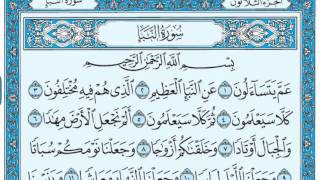 الجزء الثلاثون سورة النبإ
سورة النبإ
بسم الله الرحمن الرحيم
عم يتساءلون ١ عن النبإ العظيم ٢ الذي هم فيه مختلفون ٣
كلا سيعلمون ٤ ثم كلا سيعلمون ٥ ألم نجعل الأرض مهدا ٦
والجبال أوتادا ٧ وخلقناكم أزواجا ٨ وجعلنا نومكم سباتا